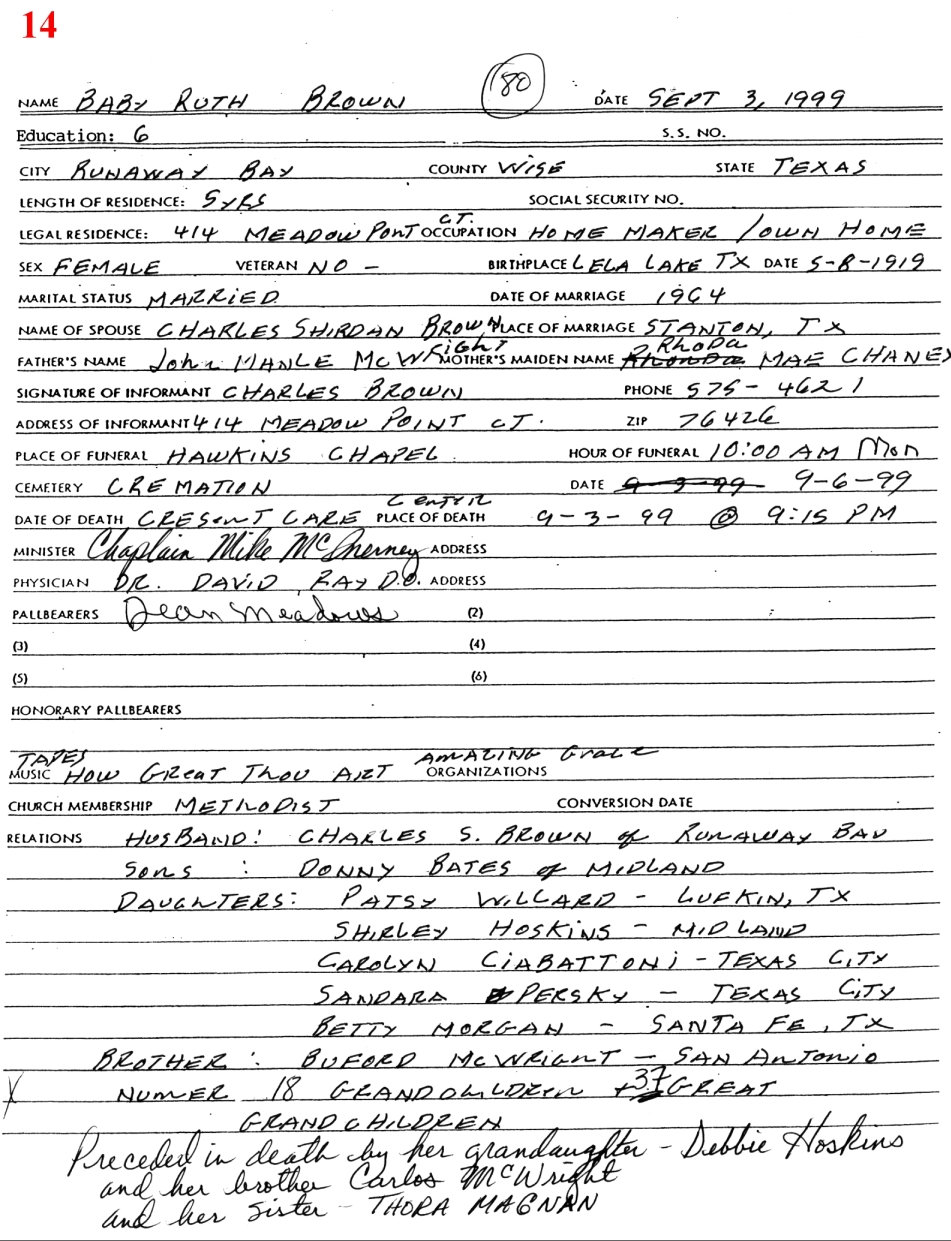 14
NAME BABY RUTH BROWN (80) DATE SEPT 3, 1999
Education: 6 S.S. NO.
CITY RUNAWAY BAY COUNTY WISE STATE TEXAS
LENGTH OF RESIDENCE: 5 YRS SOCIAL SECURITY NO.
LEGAL RESIDENCE: 414 MEADOW PONT CT. OCCUPATION HOME MAKER / OWN HOME
SEX FEMALE VETERAN NO - BIRTHPLACE LELA LAKE TX DATE 5-8-1919
MARITAL STATUS MARRIED DATE OF MARRIAGE 1964
NAME OF SPOUSE CHARLES SHIRDAN BROWN PLACE OF MARRIAGE STANTON, TX
FATHER'S NAME John MANLE McWRight MOTHER'S MAIDEN NAME Rhonda RhoDa MAE CHANEY
SIGNATURE OF INFORMANT CHARLES BROWN PHONE 575-4621
ADDRESS OF INFORMANT 414 MEADOW POINT CT. ZIP 76426
PLACE OF FUNERAL HAWKINS CHAPEL HOUR OF FUNERAL 10:00 AM Mon
CEMETERY CREMATION DATE 9-9-99 9-6-99
DATE OF DEATH CRESENT CARE Center PLACE OF DEATH 9-3-99 @ 9:15 PM
MINISTER Chaplain Mike McInerney ADDRESS
PHYSICIAN DR. DAVID RAY D.O. ADDRESS
PALLBEARERS Dean Meadows (2)
(3) (4)
(5) (6)
HONORARY PALLBEARERS
TAPES AMAZING Grace
MUSIC HOW GREAT THOU ART ORGANIZATIONS
CHURCH MEMBERSHIP METHODIST CONVERSION DATE
RELATIONS HUSBAND: CHARLES S. BROWN of RUNAWAY BAY
SONS : DONNY BATES of MIDLAND
DAUGHTERS: PATSY WILLARD - LUFKIN, TX
SHIRLEY HOSKINS - MIDLAND
CAROLYN CIABATTONI - TEXAS CITY
SANDARA PERSKY - TEXAS CITY
BETTY MORGAN - SANTA FE, TX
BROTHER : BUFORD McWRIGHT - SAN ANTONIO
X NUMER 18 GRANDCHILDREN + 37 GREAT
GRANDCHILDREN
Preceded in death by her grandaughter - Debbie Hoskins
and her brother Carlos McWright
and her sister - THORA MAGNAN